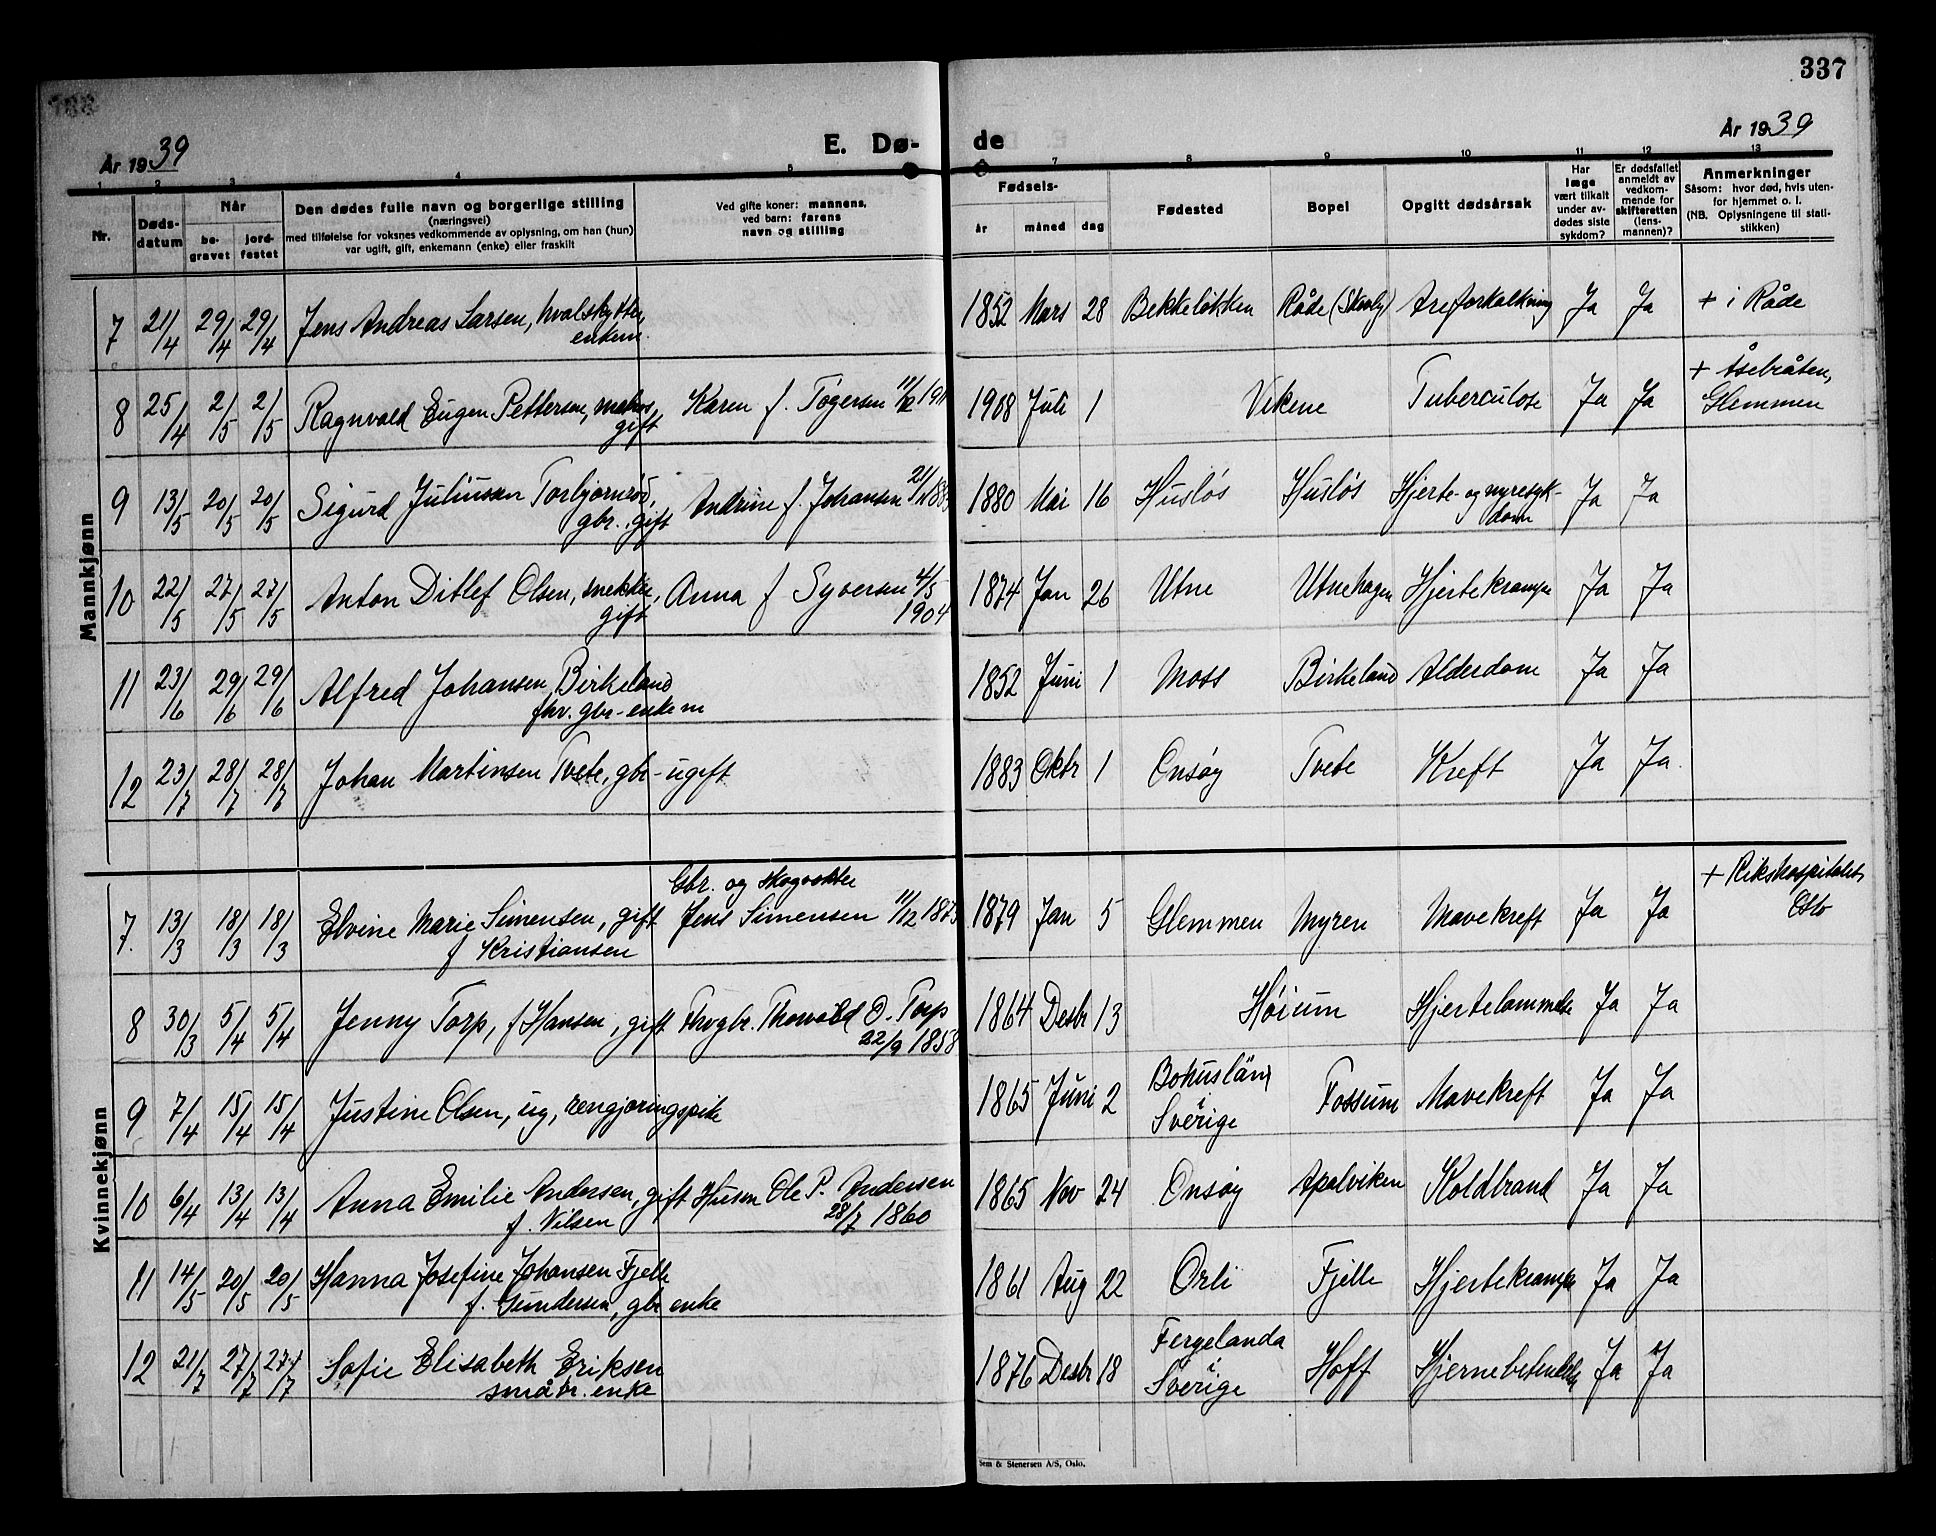 337
År 1939
E. Dø-de
År 1939
1 2 3 4 5 7 8 9 10 11 12 13
Nr.
Døds-datum
Når
be-gravet
jord-festet
Den dødes fulle navn og borgerlige stilling
(næringsvei)
med tilføielse for voksnes vedkommende av oplysning, om han (hun)
var ugift, gift, enkemann (enke) eller fraskilt
Ved gifte koner: mannens,
ved barn: farens
navn og stilling
Fødsels-
år måned dag
Fødested
Bopel
Opgitt dødsårsak
Har læge vært tilkalt under av-dødes siste sykdom?
Er dødsfallet anmeldt av vedkom-mende for skifteretten (lens-mannen)?
Anmerkninger
Såsom: hvor død, hvis uten-
for hjemmet o. l.
(NB. Oplysningene til stati-
stikken)
Mannkjønn
7 21/4 29/4 29/4 Jens Andreas Larsen, hvalskytter, 1852 Mars 28 Bekkeløkken Råde (Skovly) Areforkalkning Ja Ja + i Råde
enkem.
8 25/4 2/5 2/5 Ragnvald Eugen Pettersen, matros, Karen f. Togersen 1908 Juli 1 Vikene Tuberculose Ja Ja + Åsebråten,
gift Glemmen
9 13/5 20/5 20/5 Sigurd Juliussen Torbjørnrød, Andrine f. Johansen 1880 Mai 16 Husløs Husløs Hjerte- og nyresyk- Ja Ja
gbr. gift dom
10 22/5 27/5 27/5 Anton Ditlef Olsen, snekker, Anna f Syversen 4/5 1874 Jan 26 Utne Utnehagen Hjertekrampe Ja Ja
gift 1904
11 23/6 29/6 29/6 Alfred Johansen Birkeland 1852 Juni 1 Moss Birkeland Alderdom Ja Ja
fhv. gbr- enkem
12 23/7 28/7 28/7 Johan Martinsen Tvete, gbr- ugift 1883 Oktr 1 Onsøy Tvete Kreft Ja Ja.
Kvinnekjønn
Gbr. og skogvokter
7. 13/3 18/3 18/3 Elvine Marie Simensen, gift Jens Simensen 11/12 1873 1879 Jan 5 Glemmen Myren Mavekreft Ja Ja + Rikshospitalet,
f Kristiansen Oslo
8 30/3 5/4 5/4 Jenny Torp, f Hansen, gift Fhvgbr. Thorvald O. Torp 1864 Desbr 13 Høium Hjertelammelse Ja Ja
22/9 1858
9 7/4 15/4 15/4 Justine Olsen, ug, rengjøringspike 1865 Juni 2 Bohuslän i Sverige Fossum Mavekreft Ja Ja
10 6/4 13/4 13/4 Anna Emilie Andersen, gift Husm Ole P. Andersen 1865 Nov 24 Onsøy Apalviken Koldbrand Ja Ja
f. Nilsen 28/7 1860
11 14/5 20/5 20/5 Hanna Josefine Johansen Fjelle 1861 Aug 22 Orli Fjelle Hjertekrampe Ja Ja
f. Gundersen, gbr enke
12 21/7 27/7 27/7 Sofie Elisabeth Eriksen 1876 Desbr 18 Fergelanda i Sverige Hoff Hjernebetendelse Ja Ja
småbr. enke
Sem & Stenersen A/S, Oslo.